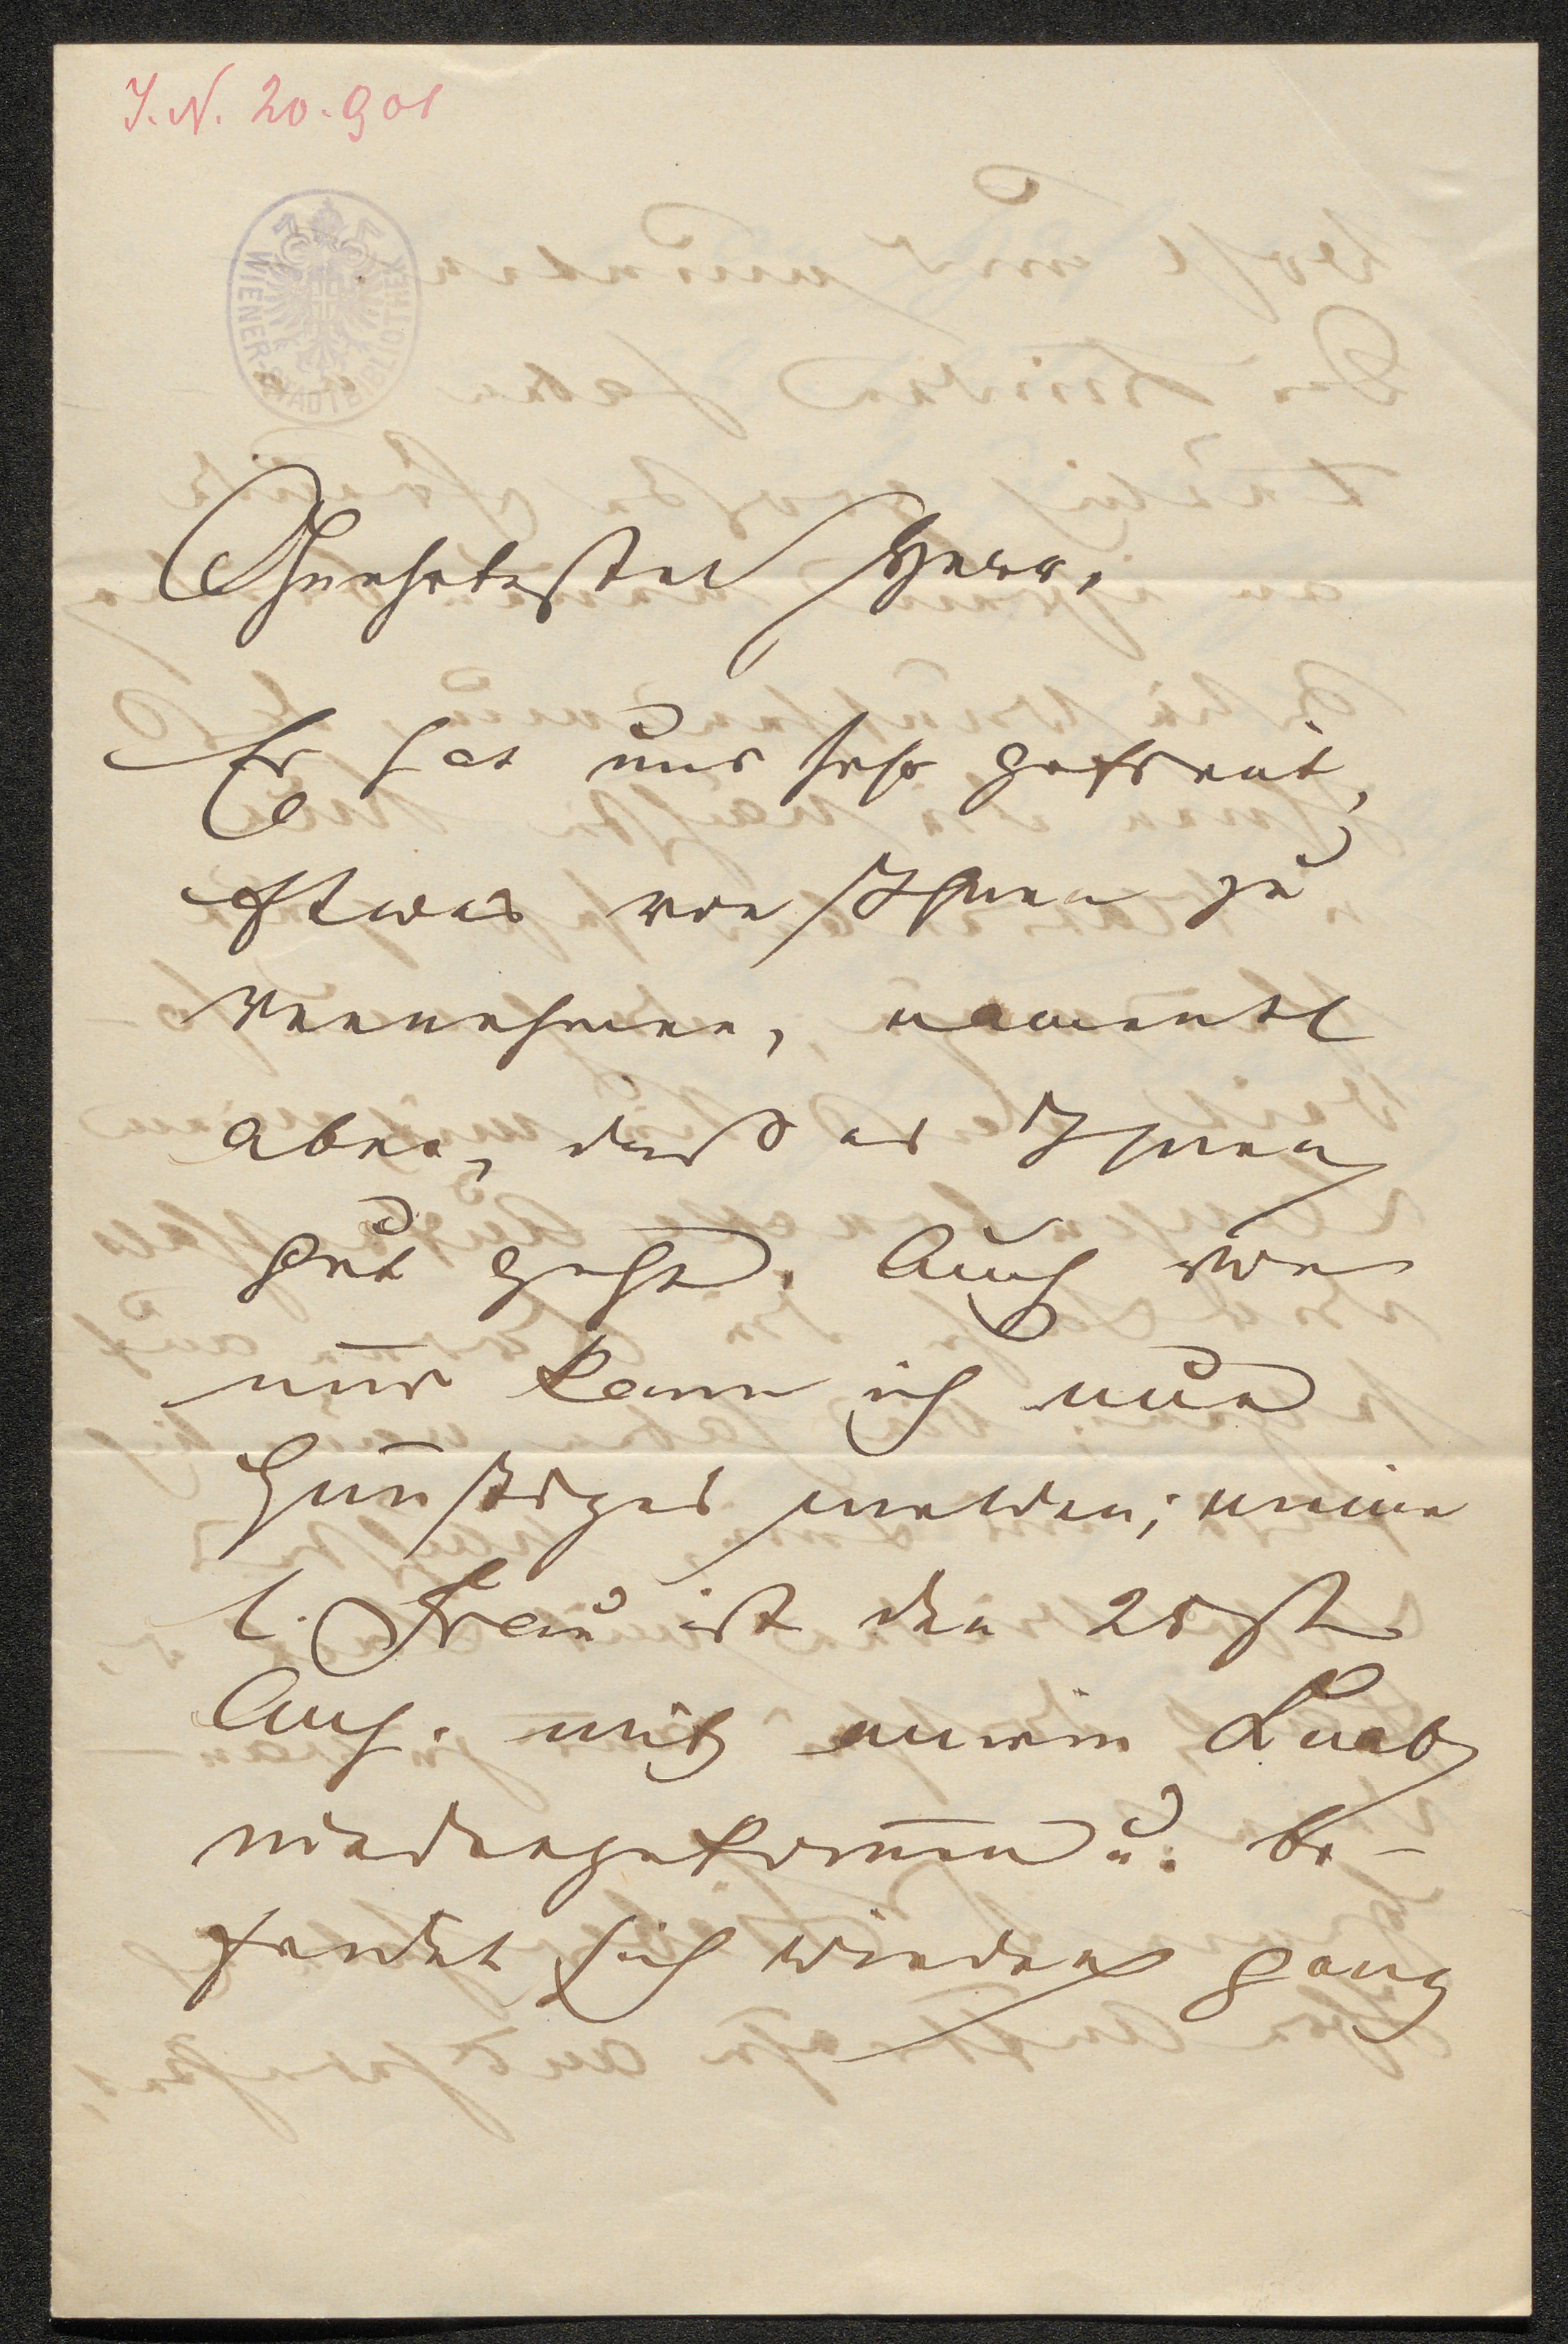 J. N. 20.901
WIENER-STADTBIBLIOTHEK
Geehrtester Herr,
Es hat uns sehr gefreut,
etwas von Ihnen zu
vernehmen, namentl
aber, daß es Ihnen
gut geht. Auch von
uns kann ich nur
Günstiges melden; meine
l. Frau ist den 28st
Aug. mit einem Knaben
niedergekommen u. be-
findet sich wieder ganz